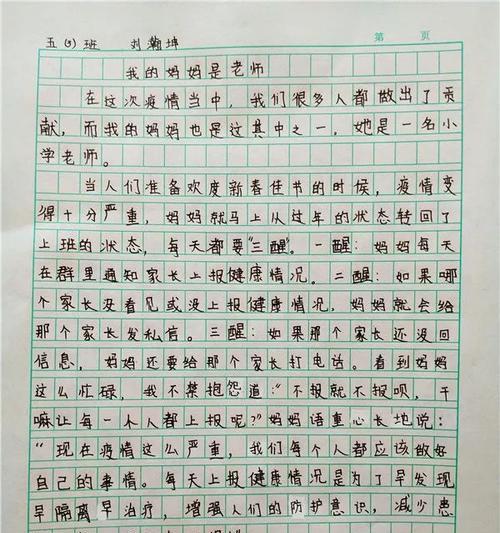 五(3)班 刘瀚坤 第 页
我的妈妈是老师
在这次疫情当中,我们很多人都做出了贡
献,而我的妈妈也是这其中之一,她是一名小
学老师。
当人们准备欢度新春佳节的时候,疫情变
得十分严重,妈妈就马上从过年的状态转回了
上班的状态,每天都要"三醒"。一醒:妈妈每天
在群里通知家长上报健康情况。二醒:如果哪
个家长没看见或没上报健康情况,妈妈就会给
那个家长发私信。三醒:如果那个家长还没回
信息,妈妈还要给那个家长打电话。看到妈妈
这么忙碌,我不禁抱怨道:"不报就不报呗,干
嘛让每一个人都上报呢?"妈妈语重心长地说:
"现在疫情这么严重,我们每个人都应该做好
自己的事情。每天上报健康情况是为了早发现
早隔离早治疗,增强人们的防护意识,减少患